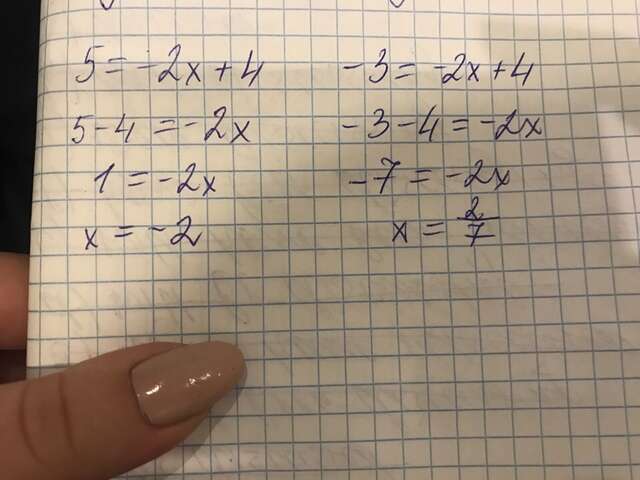 5 = -2x + 4
5 - 4 = -2x
1 = -2x
x = -2
-3 = -2x + 4
-3 - 4 = -2x
-7 = -2x
x = 2/7